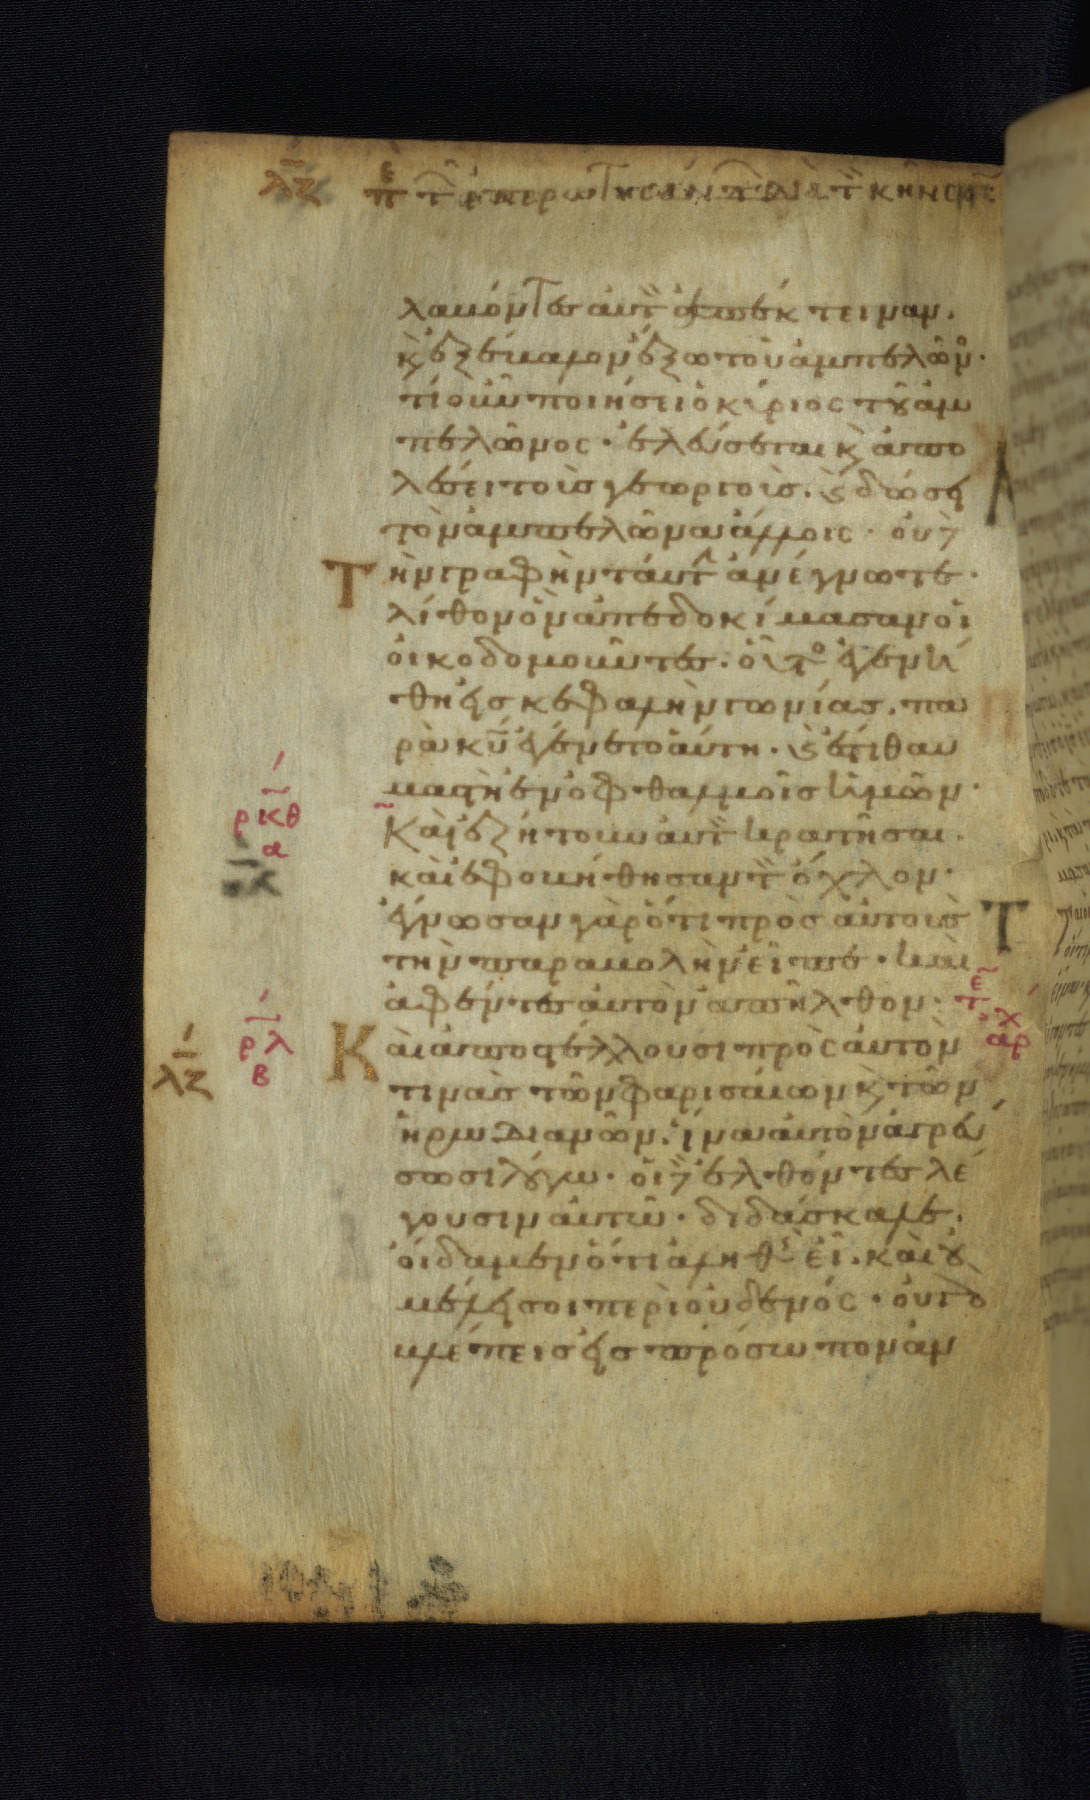 λζ π̅ε τ ἐπερωτησάντ διὰ τ κηνσον
λαμβόντες αὐτ ἀπέκτειναν.
κ̀ ἐξέβαλον ἔξω τοῦ ἀμπελῶν·
τί οὖν ποιήσει ὁ κύριος τοῦ ἀμ
πελῶνος· ἐλεύσεται κ̀ ἀπο
λέσει τοὺς γεωργοὺς. κ̀ δώσει
τὸν ἀμπελῶνα ἄλλοις· οὐδὲ
Τὴν γραφὴν ταύτ ἀνέγνωτε·
λίθον ὃν ἀπεδοκίμασαν οἱ
οἰκοδομοῦντες. οὗτος ἐγενή
θη εἰς κεφαλὴν γωνίας. πα
ρὰ κ̅υ̅ ἐγένετο αὕτη. κ̀ ἔστι θαυ
μαστὴ ἐν ὀφθαλμοῖς ἡμῶν·
ρκθ
α
Καὶ ἐζήτουν αὐτ κρατῆσαι.
καὶ ἐφοβήθησαν τ ὄχλον·
ἔγνωσαν γὰρ ὅτι πρὸς αὐτοὺς
τὴν παραβολὴν εἶπε· καὶ
ἀφέντες αὐτὸν ἀπῆλθον· τε
ἀρχ
λζ
ρλ
β
Καὶ ἀποστέλλουσι πρὸς αὐτὸν
τινὰς τῶν φαρισαίων κ̀ τῶν
ἡρωδιανῶν. ἵνα αὐτὸν ἀγρεύ
σωσι λόγω· οἱ δὲ ἐλθόντες λέ
γουσιν αὐτῶ· διδάσκαλε.
οἴδαμεν ὅτι ἀληθὴς εἶ. καὶ οὐ
μέλει σοι περὶ οὐδενός· οὐ γὰρ
βλέπεις εἰς πρόσωπον ἀν